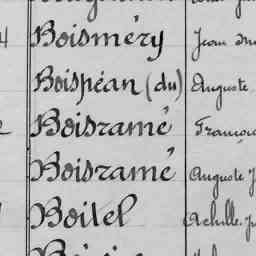 Boisméry Jean
Boispéan (du) Auguste
Boisramé
Boisramé Auguste
Boitel Achille